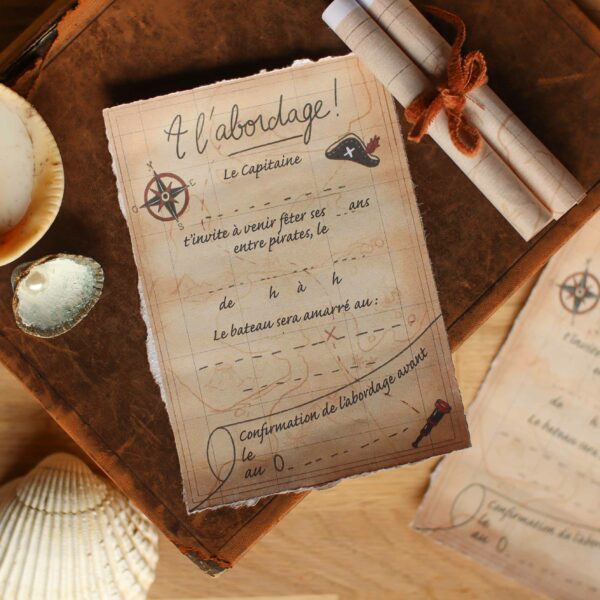 A l'abordage!
Le Capitaine
N
E
S
O
t'invite à venir fêter ses ans
entre pirates, le
de h à h
Le bateau sera amarré au :
Confirmation de l'abordage avant
le
au 0
t'invite
de
Le bateau sera
Confirmation de l'abor
le
au 0